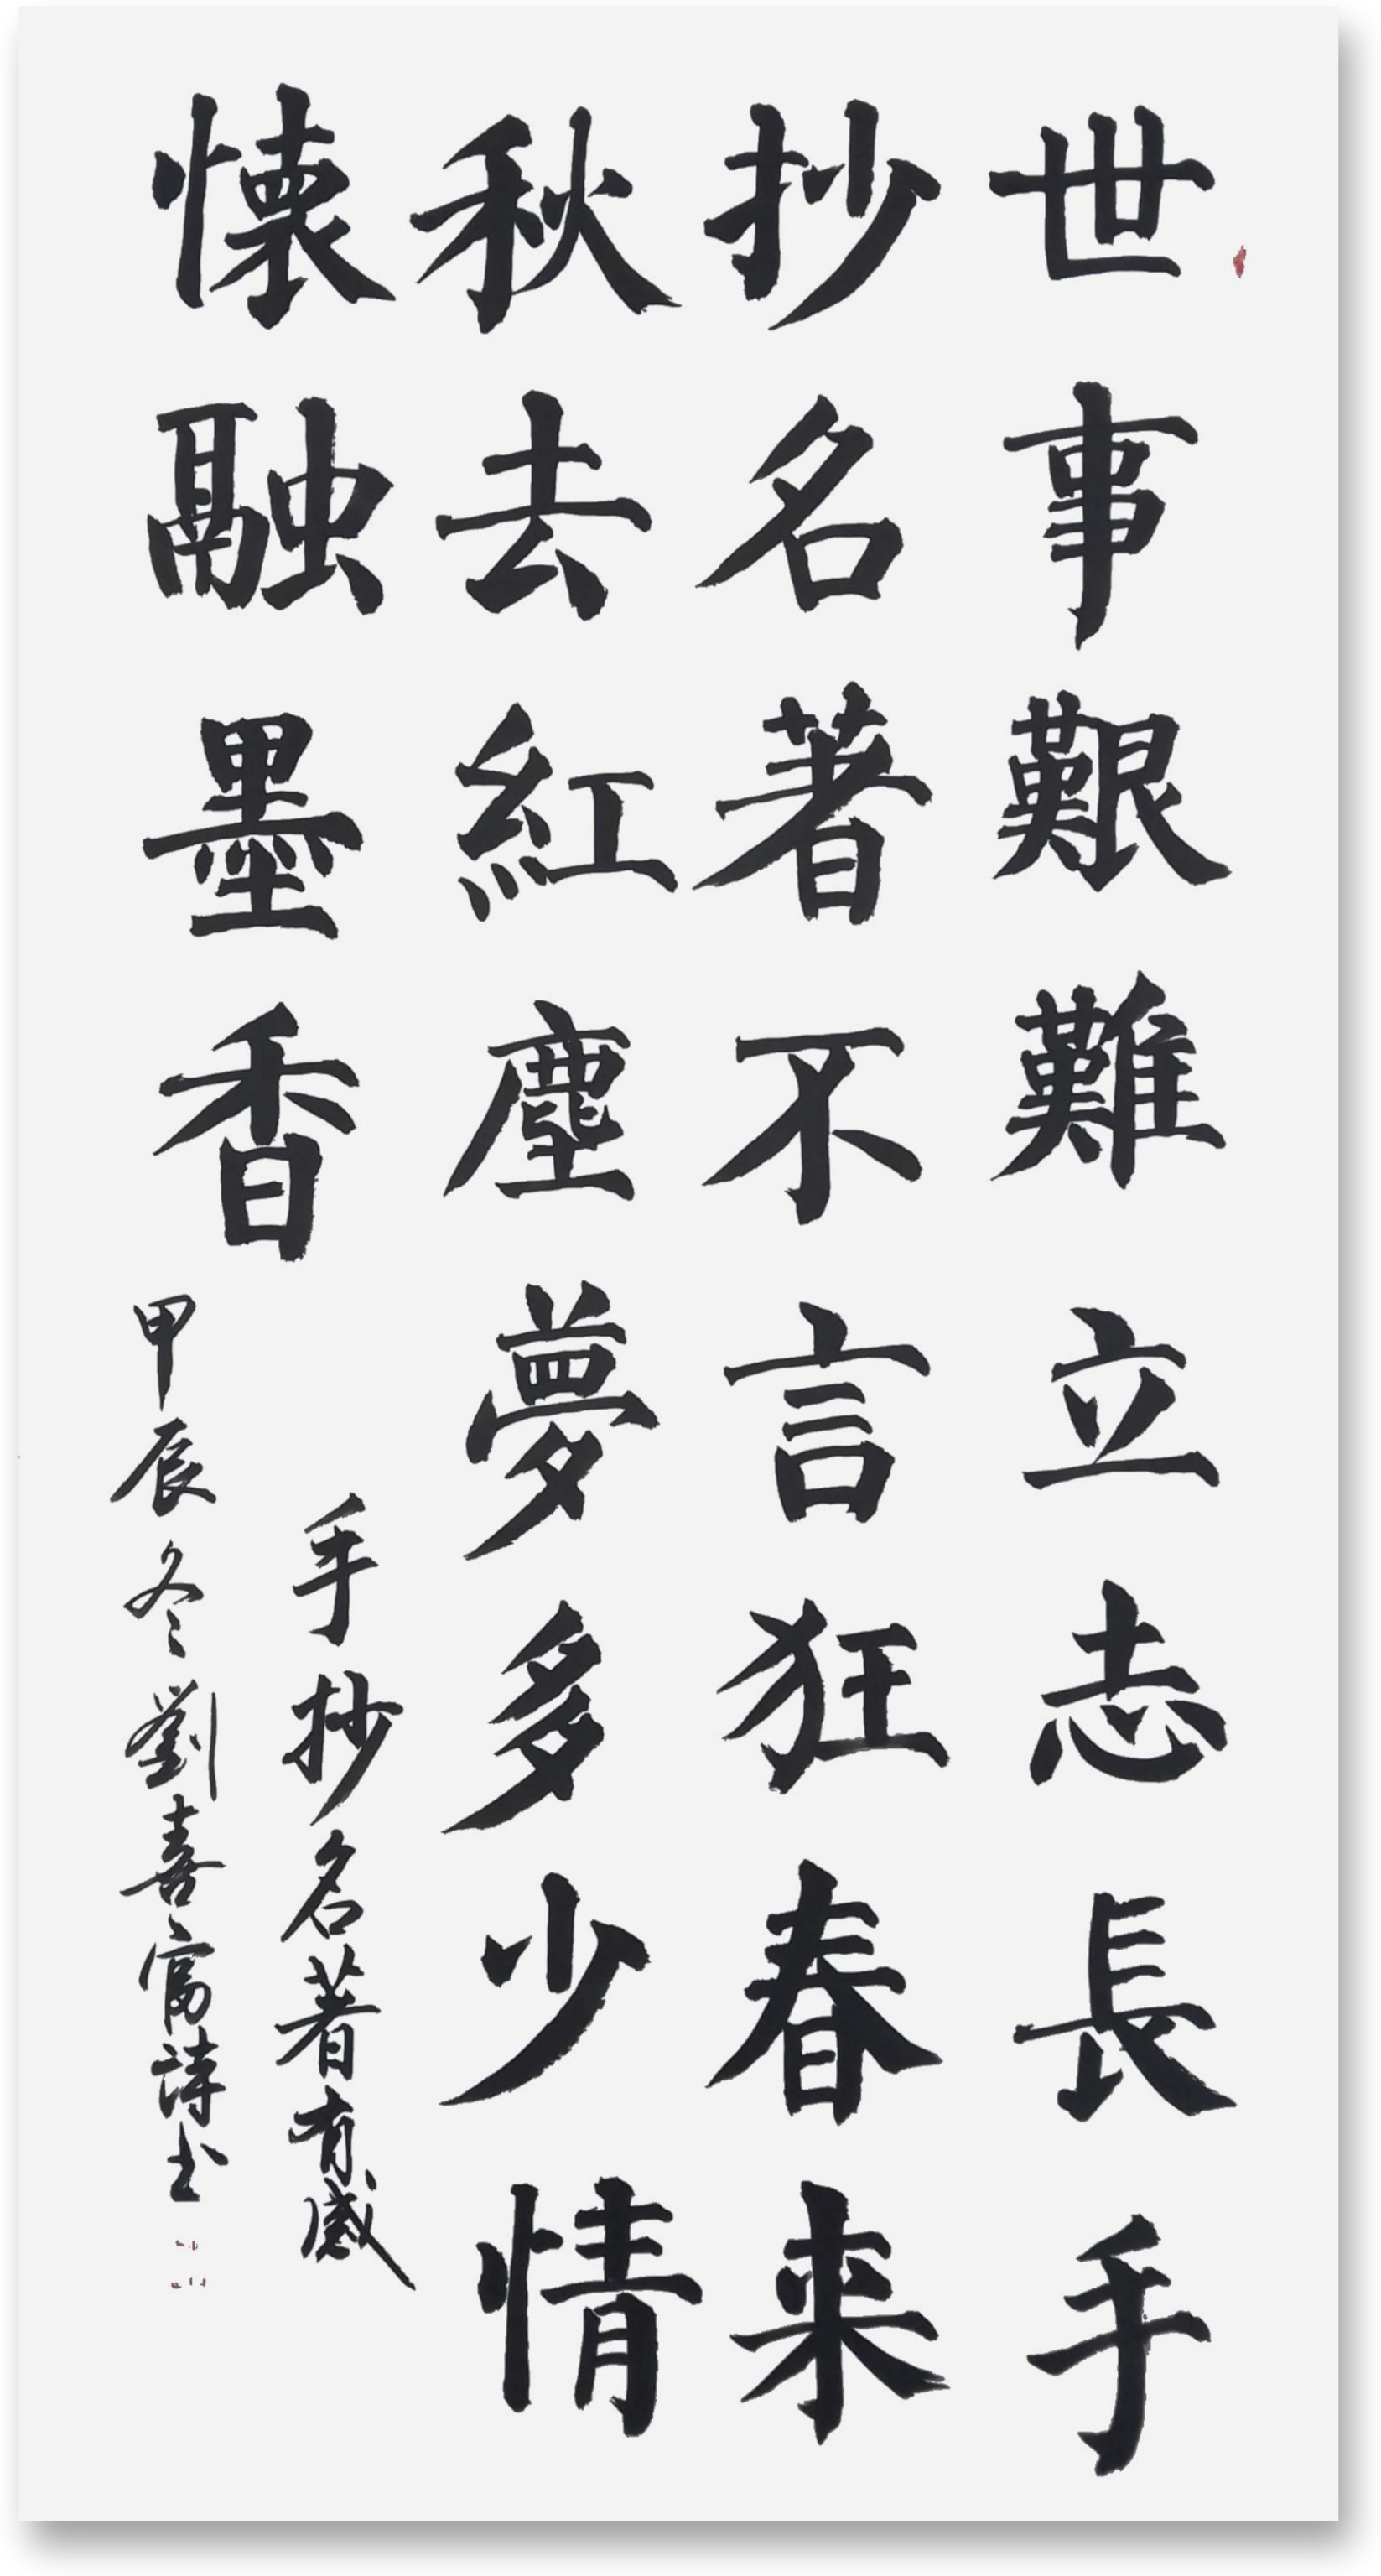 世事艱難立志長手
抄名著不言狂春来
秋去紅塵夢多少情
懷融墨香
手抄名著有感
甲辰冬劉喜富詩书